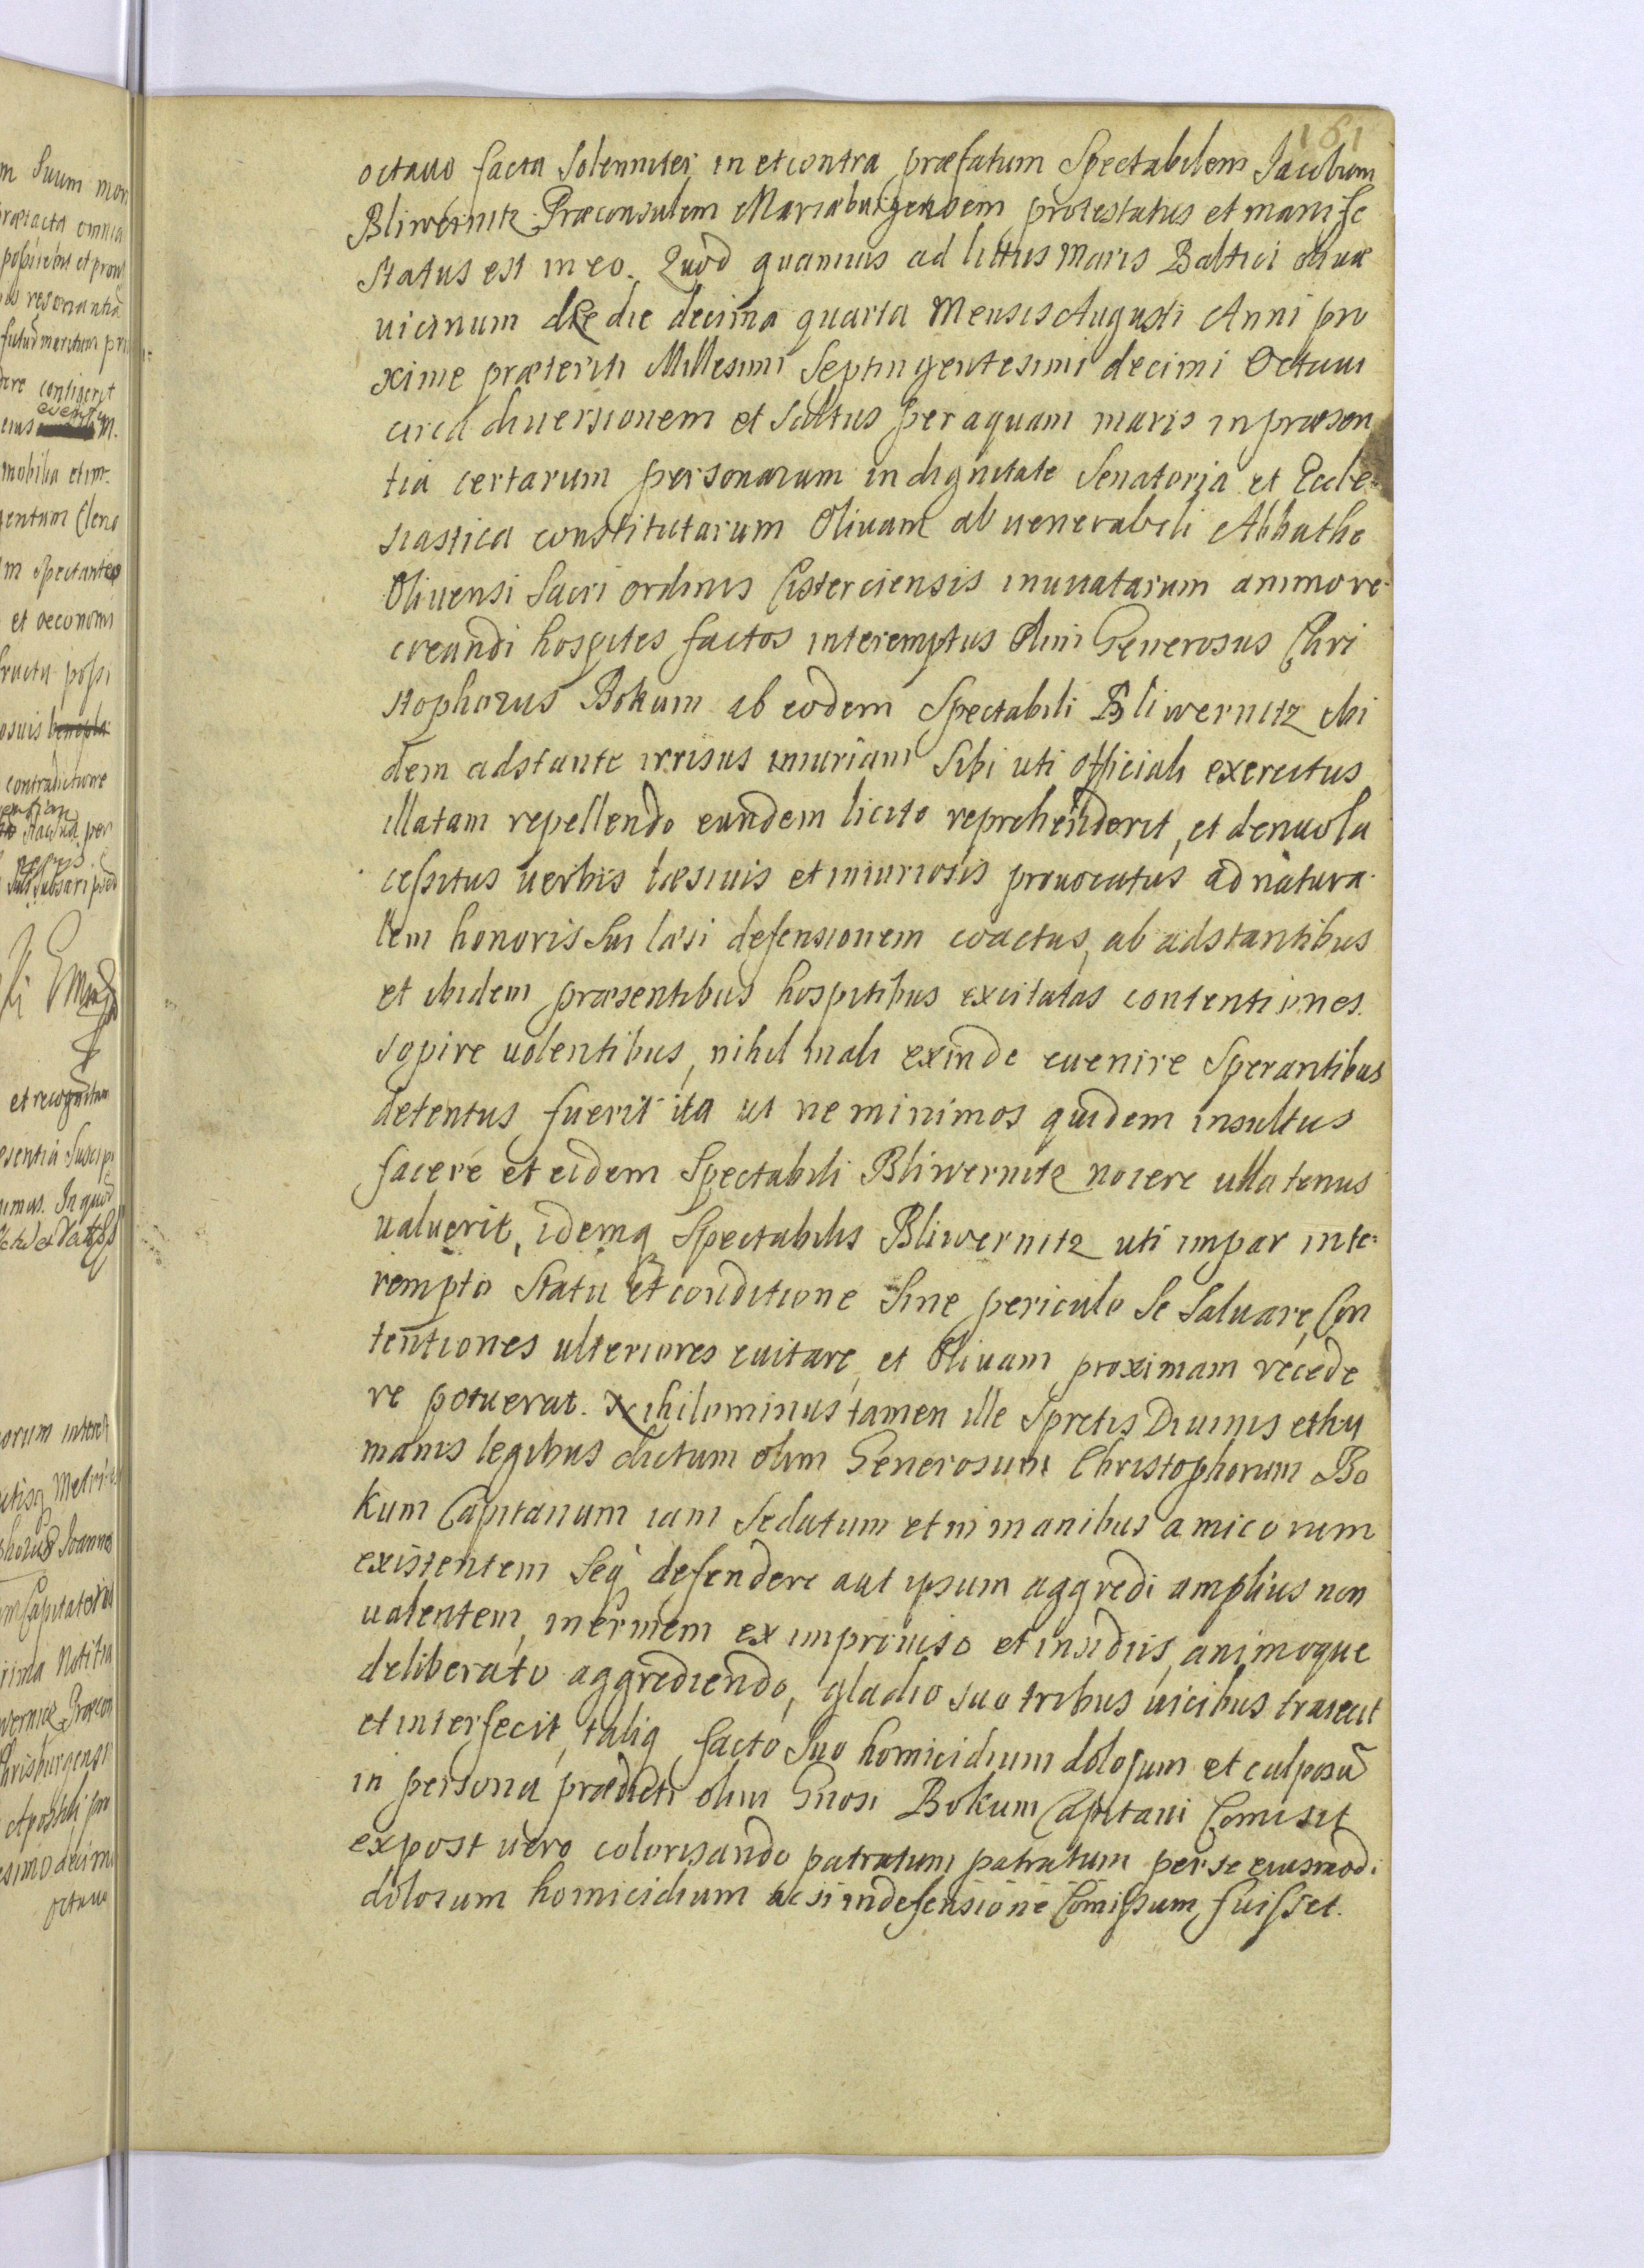 161
octauo facta Solenniter in et contra præfatum Spectabilem Jacobum
Bliwernitz Præconsulem Mariæburgensem protestatus et manife
status est in eo. Quod quamuis ad littus Maris Baltici Oliuæ
uicinum die decima quarta Mensis Augusti Anni pro
xime præteriti Millesimi Septingentesimi decimi Octaui
circa diuersionem et saltus per aquam maris in præsen
tia certarum personarum in dignitate Senatoria et Eccle-
siastica constitutarum Oliuam ab uenerabili Abbathe
Oliuensi Sacri ordinis Cisterciensis inuitatarum animo re-
creandi hospites factos interemptus olim Generosus Chri
stophorus Bokum ab eodem Spectabili Bliwernitz ibi
dem adstante irrisus iniuriam Sibi uti Officiali exercitus
illatam repellendo eundem licite reprehenderit, et denuo la
cessitus uerbis læsiuis et iniuriosis prouocatus ad natura-
lem honoris Sui læsi defensionem coactus, ab adstantibus
et ibidem præsentibus hospitibus excitatas contentiones
sopire uolentibus, nihil mali exinde euenire Sperantibus
detentus fuerit ita ut ne minimos quidem insultus
facere et eidem Spectabili Bliwernitz nocere ullatenus
ualuerit, idemq Spectabilis Bliwernitz uti impar inte-
rempto Statu et conditione Sine periculo Se Saluare, Con
tentiones ulteriores euitare, et Oliuam proximam recede
re potuerat. Nihilominus tamen ille Spretis Diuinis et hu
manis legibus dictum olim Generosum Christophorum Bo
kum Capitanum iam Sedatum et in manibus amicorum
existentem Seq defendere aut ipsum aggredi amplius non
ualentem, inermem ex improuiso et insidiis, animoque
deliberato aggrediendo, gladio suo tribus uicibus traiecit
et interfecit, taliq facto Suo homicidium dolosum et culposũ
in persona prædicti olim Gnosi Bokum Capitani Comisit
expost uero colorisando patratum patratum per se eiusmodi
dolosum homicidium ac si in defensione Comissum fuisset.